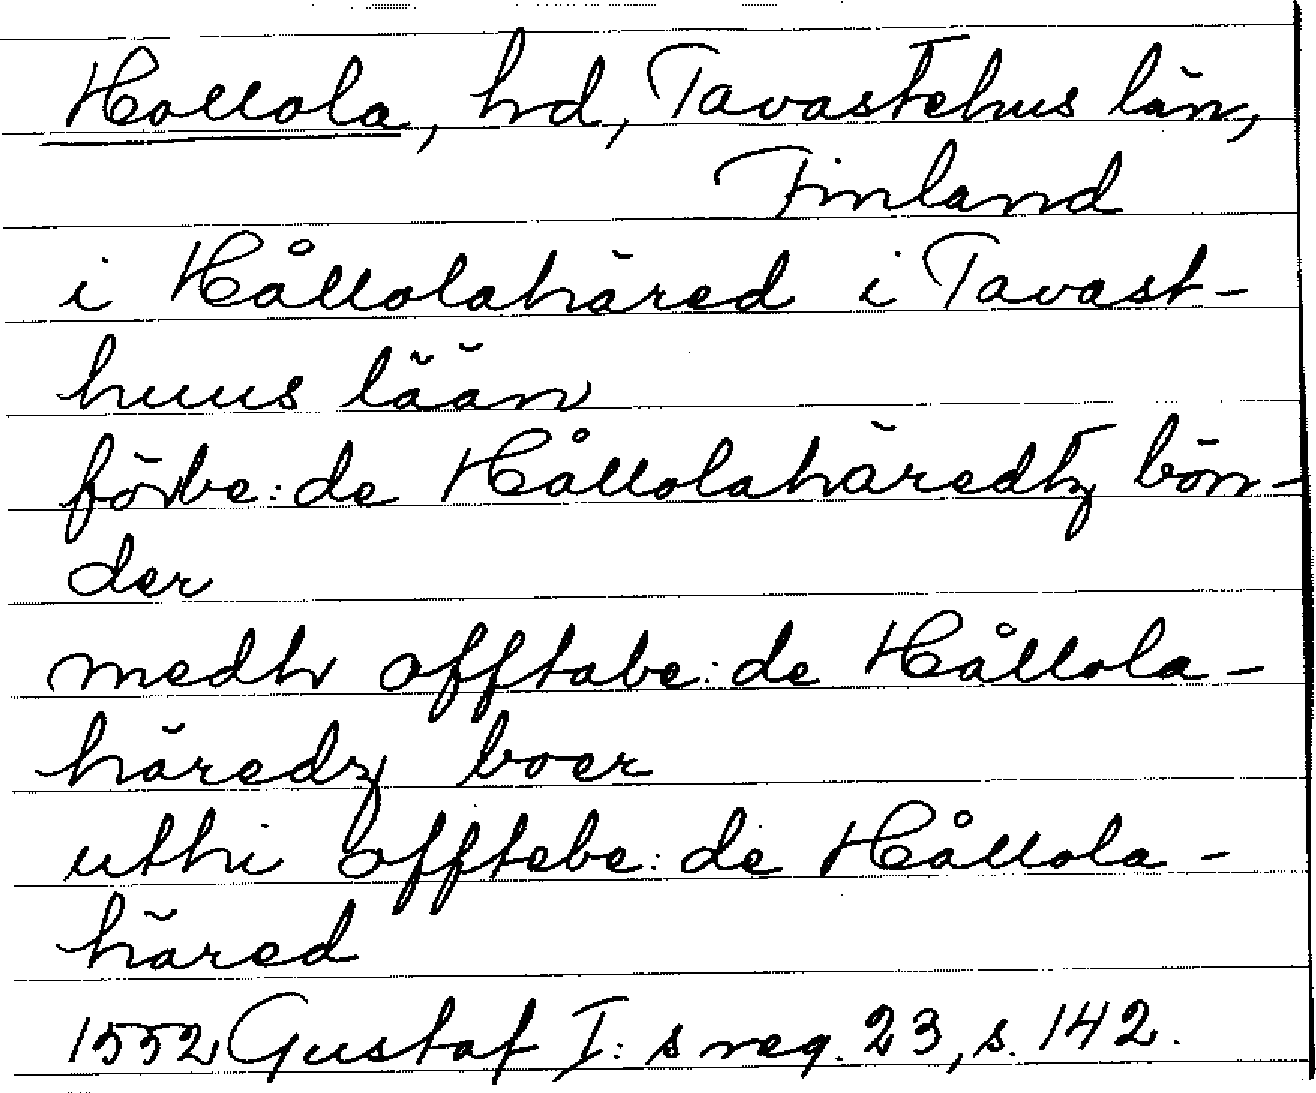 Hollola, hd, Tavastehus län,
Finland
i Hållolahäred i Tavast-
huus lään
förbe:de Hållolahäredtz bön-
der
medh offtabe:de Hållola-
häredz boer
uthi offtebe:de Hållola-
häred
1552 Gustaf I:s reg. 23, s. 142.